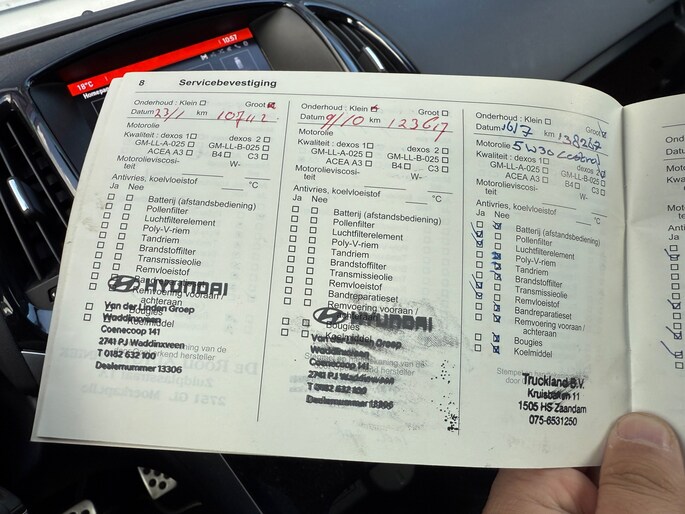 10:57
18°C
Homepage
8 Servicebevestiging
Onderhoud : Klein ☐ Groot ☒
Datum 23/1 km 107412
Motorolie
Kwaliteit : dexos 1 ☐ dexos 2 ☐
GM-LL-A-025 ☐ GM-LL-B-025 ☐
ACEA A3 ☐ B4 ☐ C3 ☐
Motorolieviscosi- W-
teit
Antivries, koelvloeistof °C
Ja Nee
☐ ☐ Batterij (afstandsbediening)
☐ ☐ Pollenfilter
☐ ☐ Luchtfilterelement
☐ ☐ Poly-V-riem
☐ ☐ Tandriem
☐ ☐ Brandstoffilter
☐ ☐ Transmissieolie
☐ ☐ Remvloeistof
HYUNDAI
Remvoering vooraan /
achteraan
Van der Linden Groep
Waddinxveen
Koelmiddel
Coenecoop 141
2741 PJ Waddinxveen
T 0182 632 100
Dealernummer 13306
Onderhoud : Klein ☒ Groot ☐
Datum 9/10 km 123617
Motorolie
Kwaliteit : dexos 1 ☐ dexos 2 ☐
GM-LL-A-025 ☐ GM-LL-B-025 ☐
ACEA A3 ☐ B4 ☐ C3 ☐
Motorolieviscosi- W-
teit
Antivries, koelvloeistof °C
Ja Nee
☐ ☐ Batterij (afstandsbediening)
☐ ☐ Pollenfilter
☐ ☐ Luchtfilterelement
☐ ☐ Poly-V-riem
☐ ☐ Tandriem
☐ ☐ Brandstoffilter
☐ ☐ Transmissieolie
☐ ☐ Remvloeistof
☐ ☐ Bandreparatieset
☐ ☐ Remvoering vooraan /
HYUNDAI
Bougies
Koelmiddel
Van der Linden Groep
Waddinxveen
Coenecoop 141
2741 PJ Waddinxveen
T 0182 632 100
Dealernummer 13306
Onderhoud : Klein ☐ Groot ☑
Datum 16/7 km 138267
Motorolie 5W30
Kwaliteit : dexos 1 ☐ dexos 2 ☑
GM-LL-A-025 ☐ GM-LL-B-025 ☐
ACEA A3 ☐ B4 ☐ C3 ☐
Motorolieviscosi- W-
teit
Antivries, koelvloeistof °C
Ja Nee
Batterij (afstandsbediening)
Pollenfilter
Luchtfilterelement
Poly-V-riem
Tandriem
Brandstoffilter
Transmissieolie
Remvloeistof
Bandreparatieset
Remvoering vooraan /
achteraan
Bougies
Koelmiddel
Truckland B.V.
Kruisbaken 11
1505 HS Zaandam
075-6531250